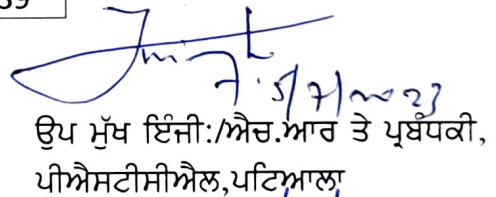 39
5/7/2023
ਉਪ ਮੁੱਖ ਇੰਜੀ:/ਐਚ.ਆਰ ਤੇ ਪ੍ਰਬੰਧਕੀ,
ਪੀਐਸਟੀਸੀਐਲ,ਪਟਿਆਲਾ